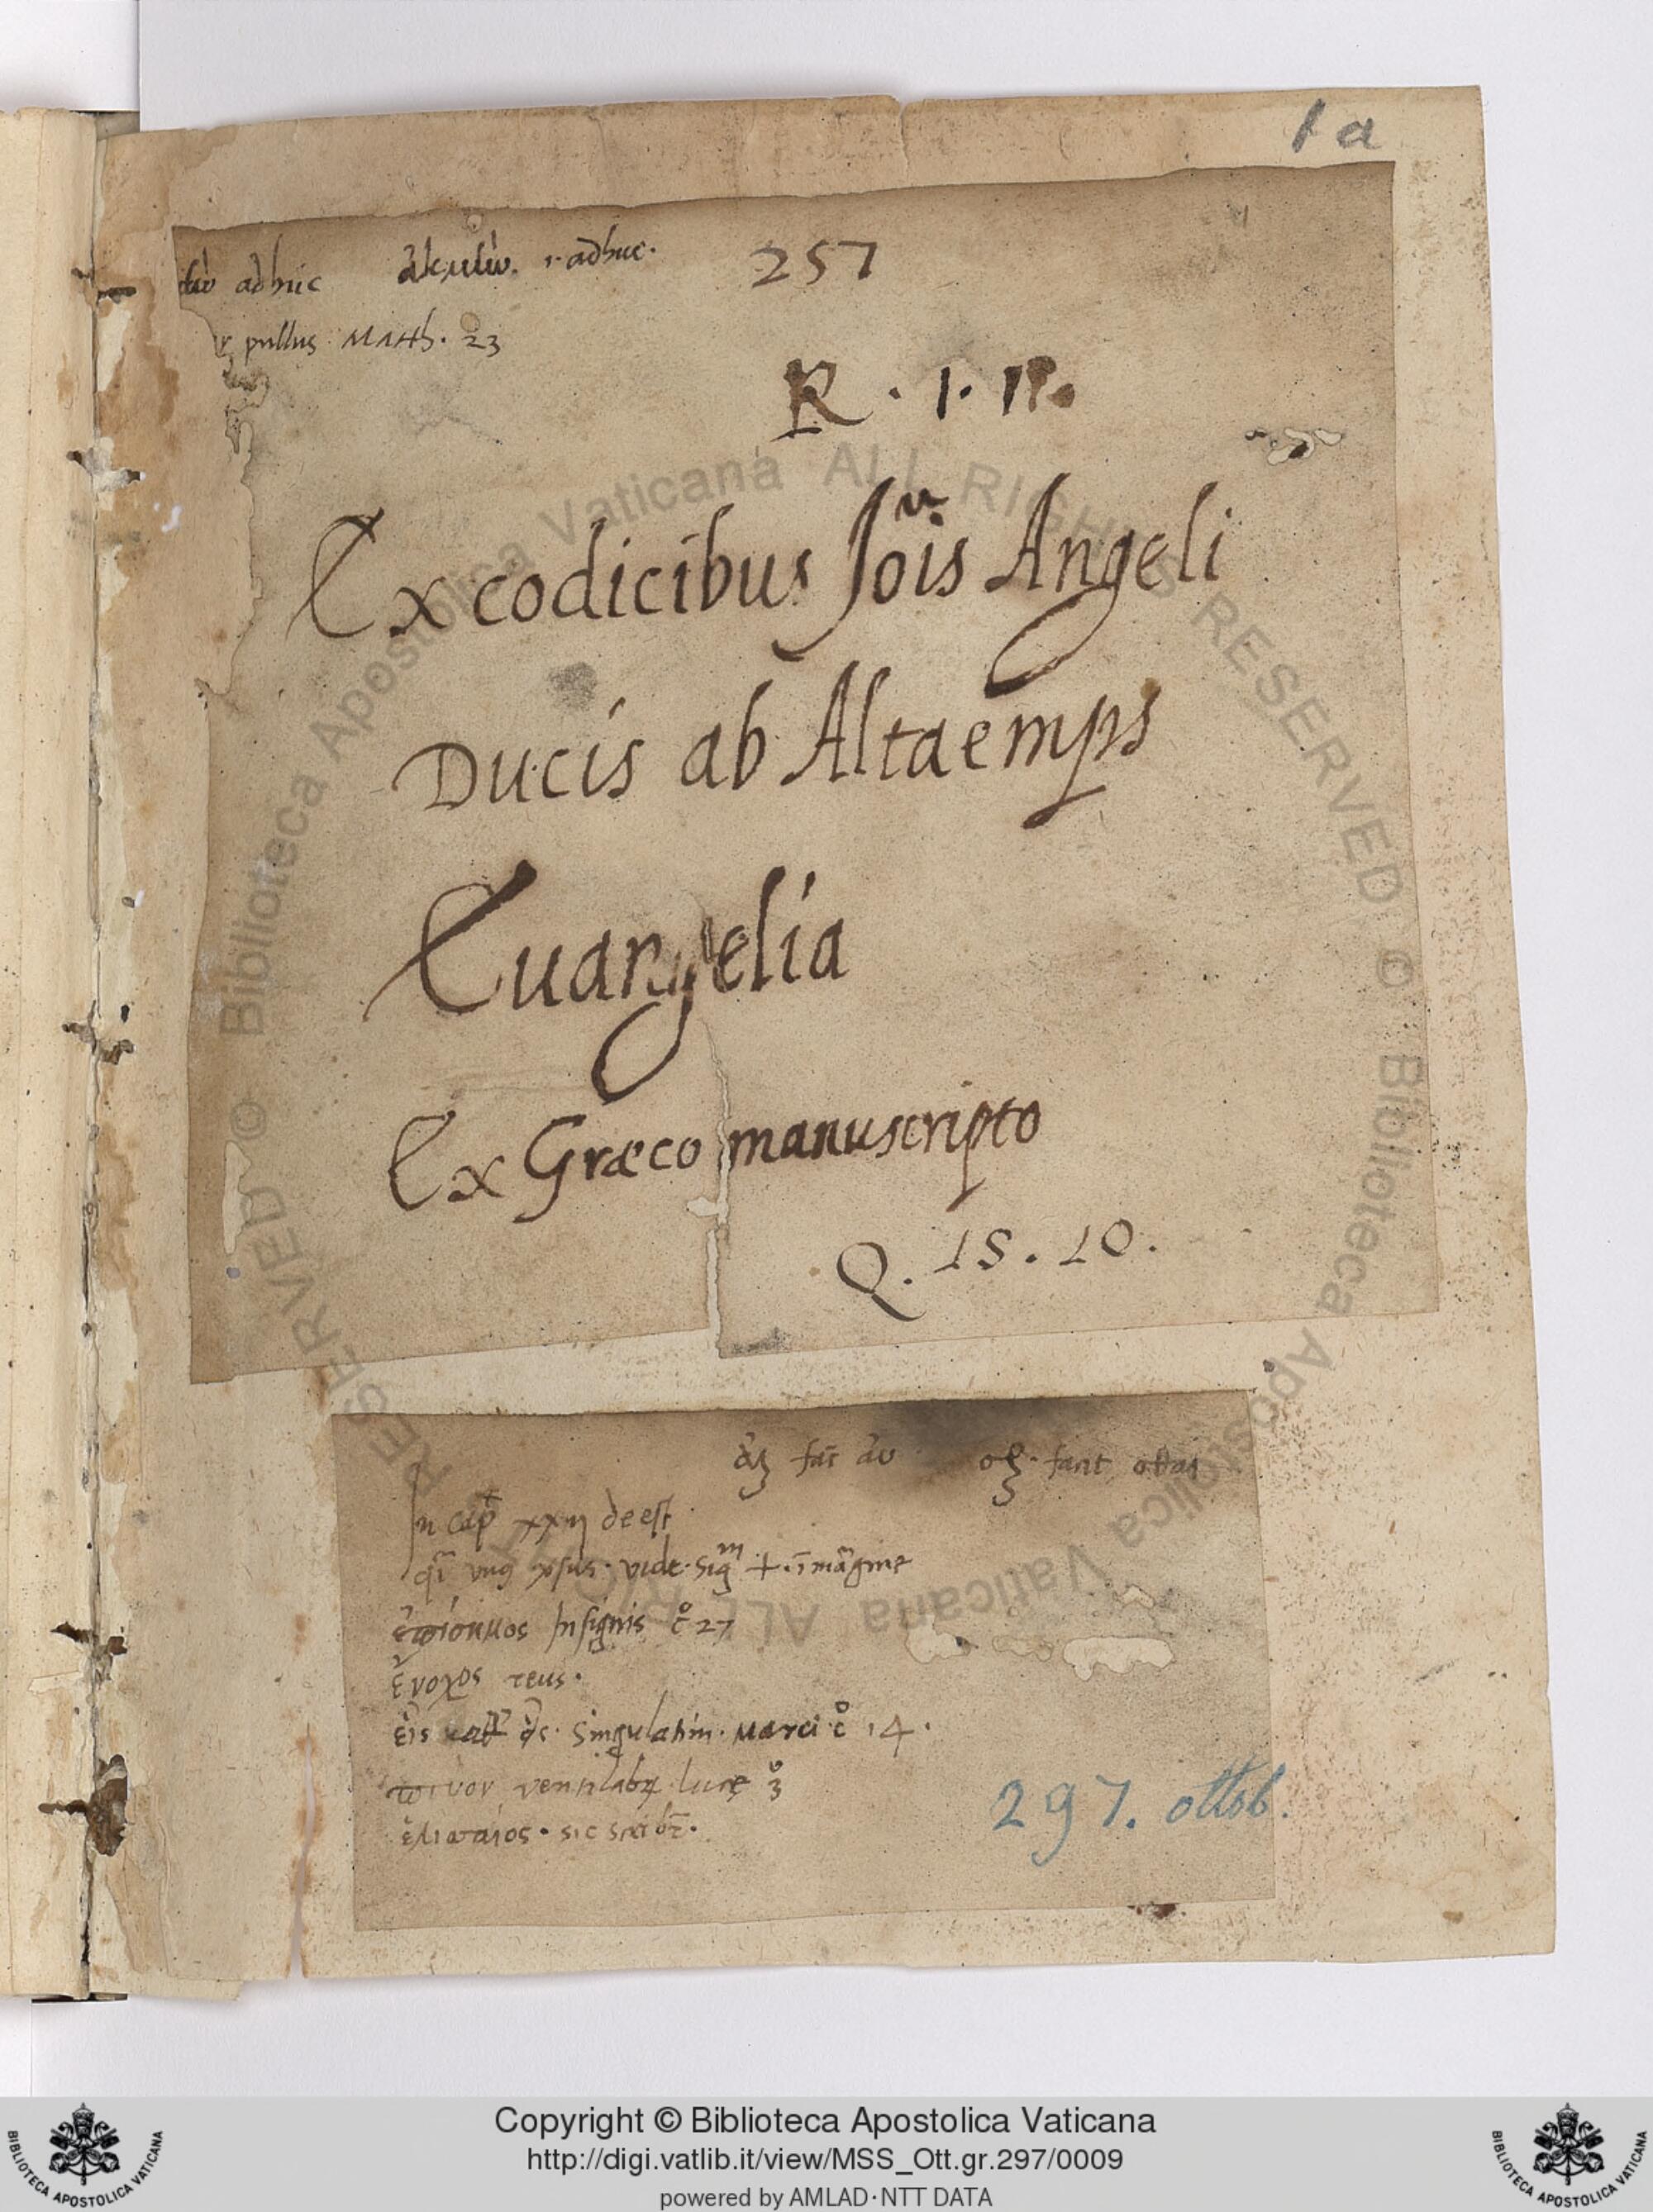 1a
adhuc ἀκμὴν. i. adhuc. 257
pullus Matth. 23
R. I. 11.
Ex codicibus Jois Angeli
Ducis ab Altaemps
Euangelia
Ex Græco manuscripto
Q. 15. 10.
In cap xxij deest
vide sig + i margine
ἐπίσημος Insignis c° 27
ἔνοχος reus.
εἷς singulatim. Marci c° 14.
ventilabrum luce 3°
sic scribit.
297. ottob.
© Biblioteca Apostolica Vaticana ALL RIGHTS RESERVED © Biblioteca Apostolica Vaticana ALL RIGHTS RESERVED
Copyright © Biblioteca Apostolica Vaticana
http://digi.vatlib.it/view/MSS_Ott.gr.297/0009
powered by AMLAD·NTT DATA
BIBLIOTECA APOSTOLICA VATICANA
BIBLIOTECA APOSTOLICA VATICANA